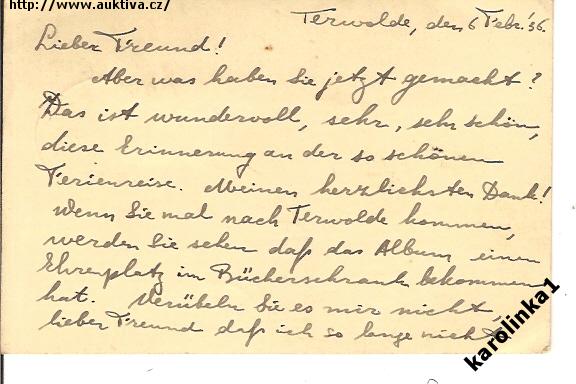 http://www.auktiva.cz/
Terwolde, den 6 Febr. '36.
Lieber Freund!
Aber was haben Sie jetzt gemacht?
Das ist wundervoll, sehr, sehr schön,
diese Erinnerung an der so schönen
Ferienreise. Meinen herzlichsten Dank!
Wenn Sie mal nach Terwolde kommen,
werden Sie sehen daß das Album einen
Ehrenplatz im Bücherschrank bekommen
hat. Verübeln Sie es mir nicht,
lieber Freund daß ich so lange nichts
karolinka1